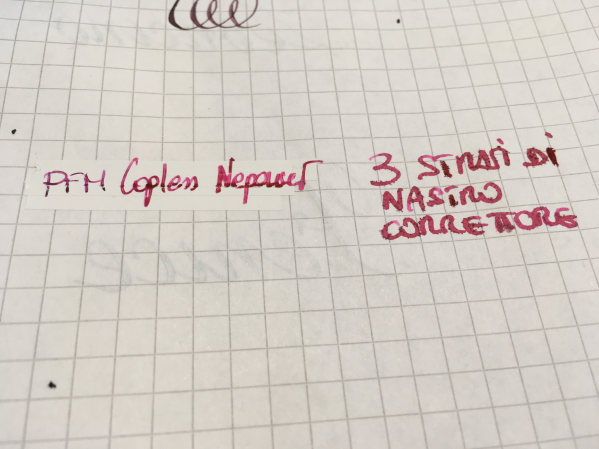 PFM Capless
3 STRATI DI
NASTRO
CORRETTORE